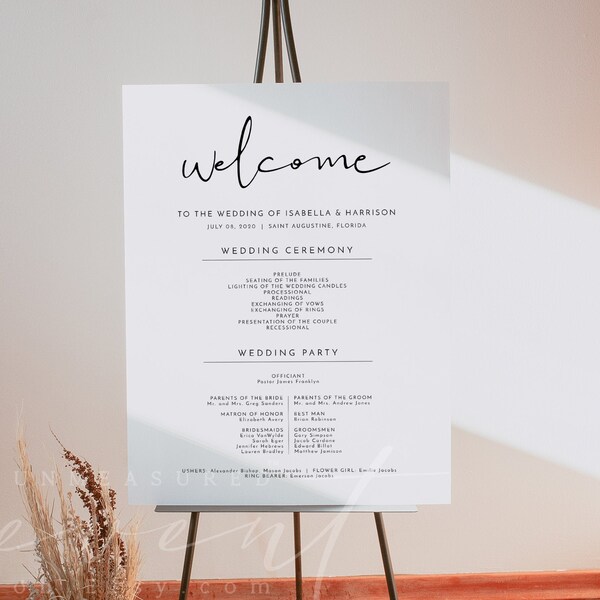 welcome
TO THE WEDDING OF ISABELLA & HARRISON
JULY 08, 2020 | SAINT AUGUSTINE, FLORIDA
WEDDING CEREMONY
PRELUDE
SEATING OF THE FAMILIES
LIGHTING OF THE WEDDING CANDLES
PROCESSIONAL
READINGS
EXCHANGING OF VOWS
EXCHANGING OF RINGS
PRAYER
PRESENTATION OF THE COUPLE
RECESSIONAL
WEDDING PARTY
OFFICIANT
Pastor James Franklyn
PARENTS OF THE BRIDE
Mr. and Mrs. Greg Sanders
MATRON OF HONOR
Elizabeth Avery
BRIDESMAIDS
Erica VanWylde
Sarah Eger
Jennifer Hebrews
Lauren Bradley
PARENTS OF THE GROOM
Mr. and Mrs. Andrew Jacobs
BEST MAN
Brian Robinson
GROOMSMEN
Gary Simpson
Jacob Cardone
Edward Billot
Matthew Jamison
USHERS: Alexander Bishop, Mason Jacobs | FLOWER GIRL: Emilia Jacobs
RING BEARER: Emerson Jacobs
UNMEASURED
event
on Etsy.com